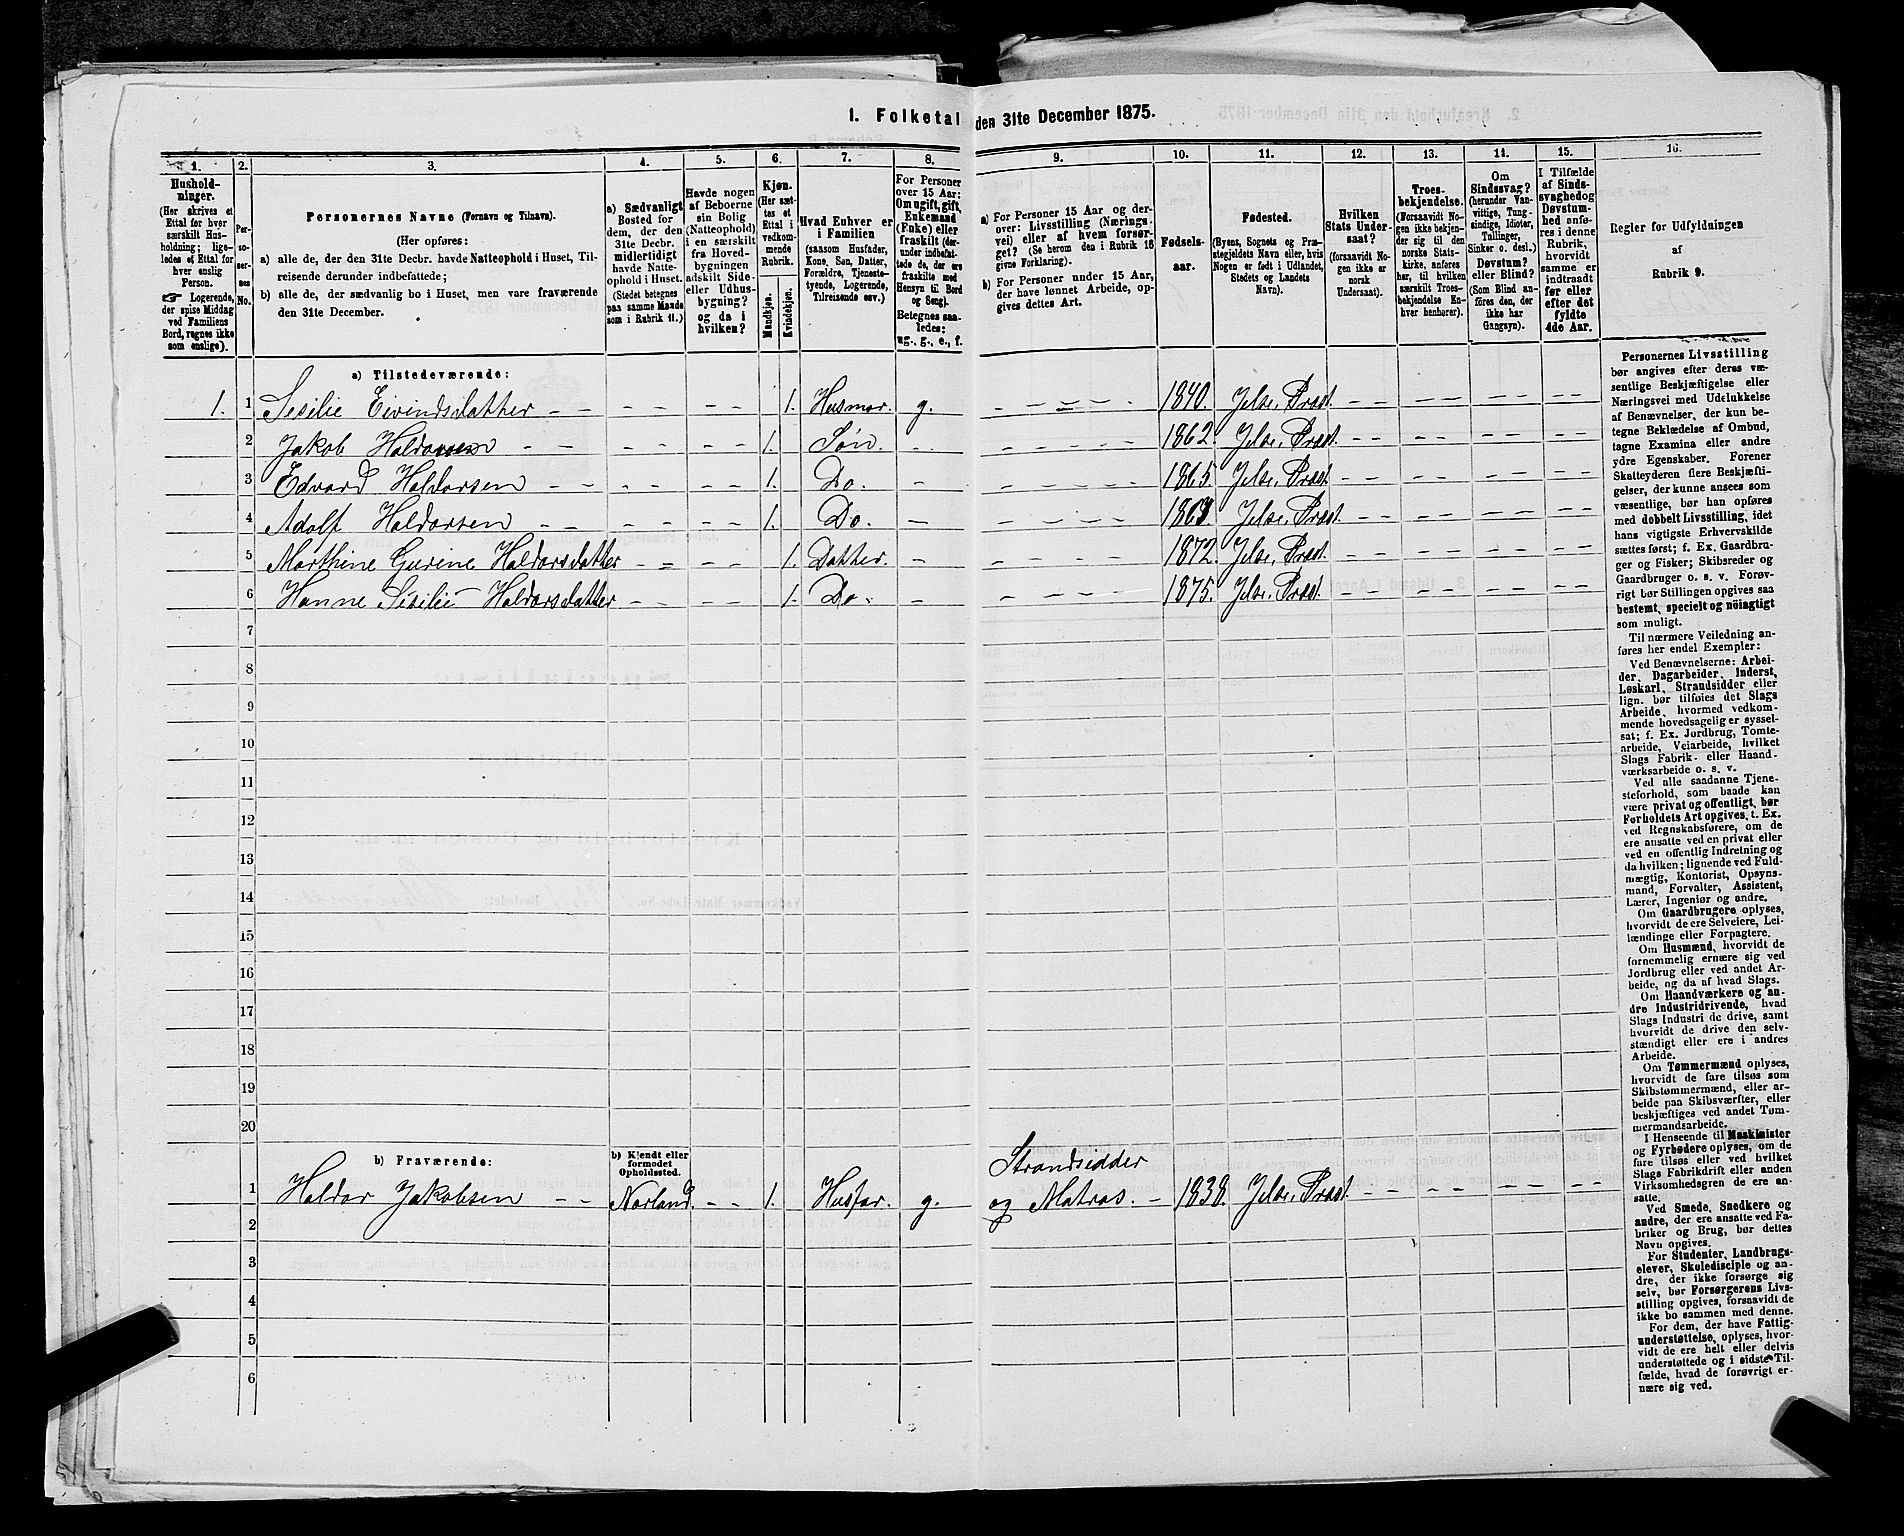 1. Folketal den 31te December 1875.
1. 2. 3. 4. 5. 6. 7. 8. 9. 10. 11. 12. 13. 14. 15. 16.
Hushold-
ninger.
(Her skrives et
Ettal for hver
særskilt Hus-
holdning; lige-
ledes et Ettal for
hver enslig
Person.
☞ Logerende,
der spise Middag
ved Familiens
Bord, regnes ikke
som enslige).
Per-
so-
ner-
nes
No.
Personernes Navne (Fornavn og Tilnavn).
(Her opføres:
a) alle de, der den 31te Decbr. havde Natteophold i Huset, Til-
reisende derunder indbefattede;
b) alle de, der sædvanlig bo i Huset, men vare fraværende
den 31te December.
a) Sædvanligt
Bosted for
dem, der den
31te Decbr.
midlertidigt
havde Natte-
ophold i Huset.
(Stedet betegnes
paa samme Maade
som i Rubrik 11.)
Havde nogen
af Beboerne
sin Bolig
(Natteophold)
i en særskilt
fra Hoved-
bygningen
adskilt Side-
eller Udhus-
bygning?
og da i
hvilken?
Kjøn.
(Her sæt-
tes et
Ettal i
vedkom-
mende
Rubrik.
Mandkjøn.
Kvindekjøn.
Hvad Enhver er
i Familien
(saasom Husfader,
Kone, Søn, Datter,
Forældre, Tjeneste-
tyende, Logerende,
Tilreisende osv.)
For Personer
over 15 Aar:
Om ugift, gift,
Enkemand
(Enke) eller
fraskilt (der-
under indbefat-
tede de, der ere
fraskilte med
Hensyn til Bord
og Seng).
Betegnes saa-
ledes:
ug., g., e., f.
a) For Personer 15 Aar og der-
over: Livsstilling (Nærings-
vei) eller af hvem forsør-
get? (Se herom den i Rubrik 16
givne Forklaring).
b) For Personer under 15 Aar,
der have lønnet Arbeide, op-
gives dettes Art.
Fødsels-
aar.
Fødested.
(Byens, Sognets og Præ-
stegjeldets Navn eller, hvis
Nogen er født i Udlandet,
Stedets og Landets
Navn).
Hvilken
Stats Under-
saat?
(forsaavidt No-
gen ikke er
norsk
Undersaat).
Troes-
bekjendelse.
(Forsaavidt No-
gen ikke bekjen-
der sig til den
norske Stats-
kirke, anføres
her, til hvilken
særskilt Troes-
bekjendelse En-
hver henhører).
Om
Sindssvag?
(herunder Van-
vittige, Tung-
sindige, Idioter,
Tullinger,
Sinker o. desl.)
Døvstum?
eller Blind?
(Som Blind an-
føres den, der
ikke har
Gangsyn).
I Tilfælde
af Sinds-
svaghed og
Døvstum-
hed anfø-
res i denne
Rubrik,
hvorvidt
samme er
indtraadt
før eller
efter det
fyldte
4de Aar.
Regler for Udfyldningen
af
Rubrik 9.
a) Tilstedeværende:
1. 1 Sesilie Eivindsdatter 1. Husmor. g. 1840. Jelse. Præst.
2 Jakob Haldorsen 1. Søn 1862. Jelse. Præst.
3 Edvard Haldorsen 1. Do. 1865. Jelse. Præst.
4 Adolf Haldorsen 1. Do. Jelse. Præst.
5 Marthine Gurine Haldorsdatter 1. Datter. 1872. Jelse. Præst.
6 Hanne Sesilie Haldorsdatter 1. Do. 1875. Jelse. Præst.
7
8
9
10
11
12
13
14
15
16
17
18
19
20
b) Fraværende:
b) Kjendt eller
formodet
Opholdssted.
1 Haldor Jakobsen Norland. 1. Husfar. g. Strandsidder
og Matros. 1838. Jelse. Præst.
2
3
4
5
6
Personernes Livsstilling
bør angives efter deres væ-
sentlige Beskjæftigelse eller
Næringsvei med Udelukkelse
af Benævnelser, der kun be-
tegne Beklædelse af Ombud,
tagne Examina eller andre
ydre Egenskaber. Forener
Skatteyderen flere Beskjæfti-
gelser, der kunne ansees som
væsentlige, bør han opføres
med dobbelt Livsstilling, idet
hans vigtigste Erhvervskilde
sættes først; f. Ex. Gaardbru-
ger og Fisker; Skibsreder og
Gaardbruger o. s. v. Forøv-
rigt bør Stillingen opgives saa
bestemt, specielt og nøiagtigt
som muligt.
Til nærmere Veiledning an-
føres her endel Exempler:
Ved Benævnelserne: Arbei-
der, Dagarbeider, Inderst,
Løskarl, Strandsidder eller
lign. bør tilføies det Slags
Arbeide, hvormed vedkom-
mende hovedsagelig er syssel-
sat; f. Ex. Jordbrug, Tomte-
arbeide, Veiarbeide, hvilket
Slags Fabrik- eller Haand-
værksarbeide o. s. v.
Ved alle saadanne Tjene-
steforhold, som baade kan
være privat og offentligt, bør
Forholdets Art opgives, t. Ex.
ved Regnskabsførere, om de
ere ansatte ved en privat eller
ved en offentlig Indretning og
da hvilken; lignende ved Fuld-
mægtig, Kontorist, Opsyns-
mand, Forvalter, Assistent,
Lærer, Ingeniør og andre.
Om Gaardbrugere oplyses,
hvorvidt de ere Selveiere, Lei-
lændinge eller Forpagtere.
Om Husmænd, hvorvidt de
fornemmelig ernære sig ved
Jordbrug eller ved andet Ar-
beide, og da af hvad Slags.
Om Haandværkere og an-
dre Industridrivende, hvad
Slags Industri de drive, samt
hvorvidt de drive den selv-
stændigt eller ere i andres
Arbeide.
Om Tømmermænd oplyses,
hvorvidt de fare tilsøs som
Skibstømmermænd, eller ar-
beide paa Skibsværfter, eller
beskjæftiges ved andet Tøm-
mermandsarbeide.
I Henseende til Maskinister
og Fyrbødere oplyses, om de
fare tilsøs eller ved hvilket
Slags Fabrikdrift eller anden
Virksomhedsgren de ere an-
satte.
Ved Smede, Snedkere og
andre, der ere ansatte ved Fa-
briker og Brug, bør dettes
Navn opgives.
For Studenter, Landbrugs-
elever, Skoledisciple og an-
dre, der ikke forsørge sig
selv, bør Forsørgerens Livs-
stilling opgives, forsaavidt de
ikke bo sammen med denne.
For dem, der have Fattig-
understøttelse, oplyses, hvor-
vidt de ere helt eller delvis
understøttede og i sidste Til-
fælde, hvad de forøvrigt er-
nære sig ved.